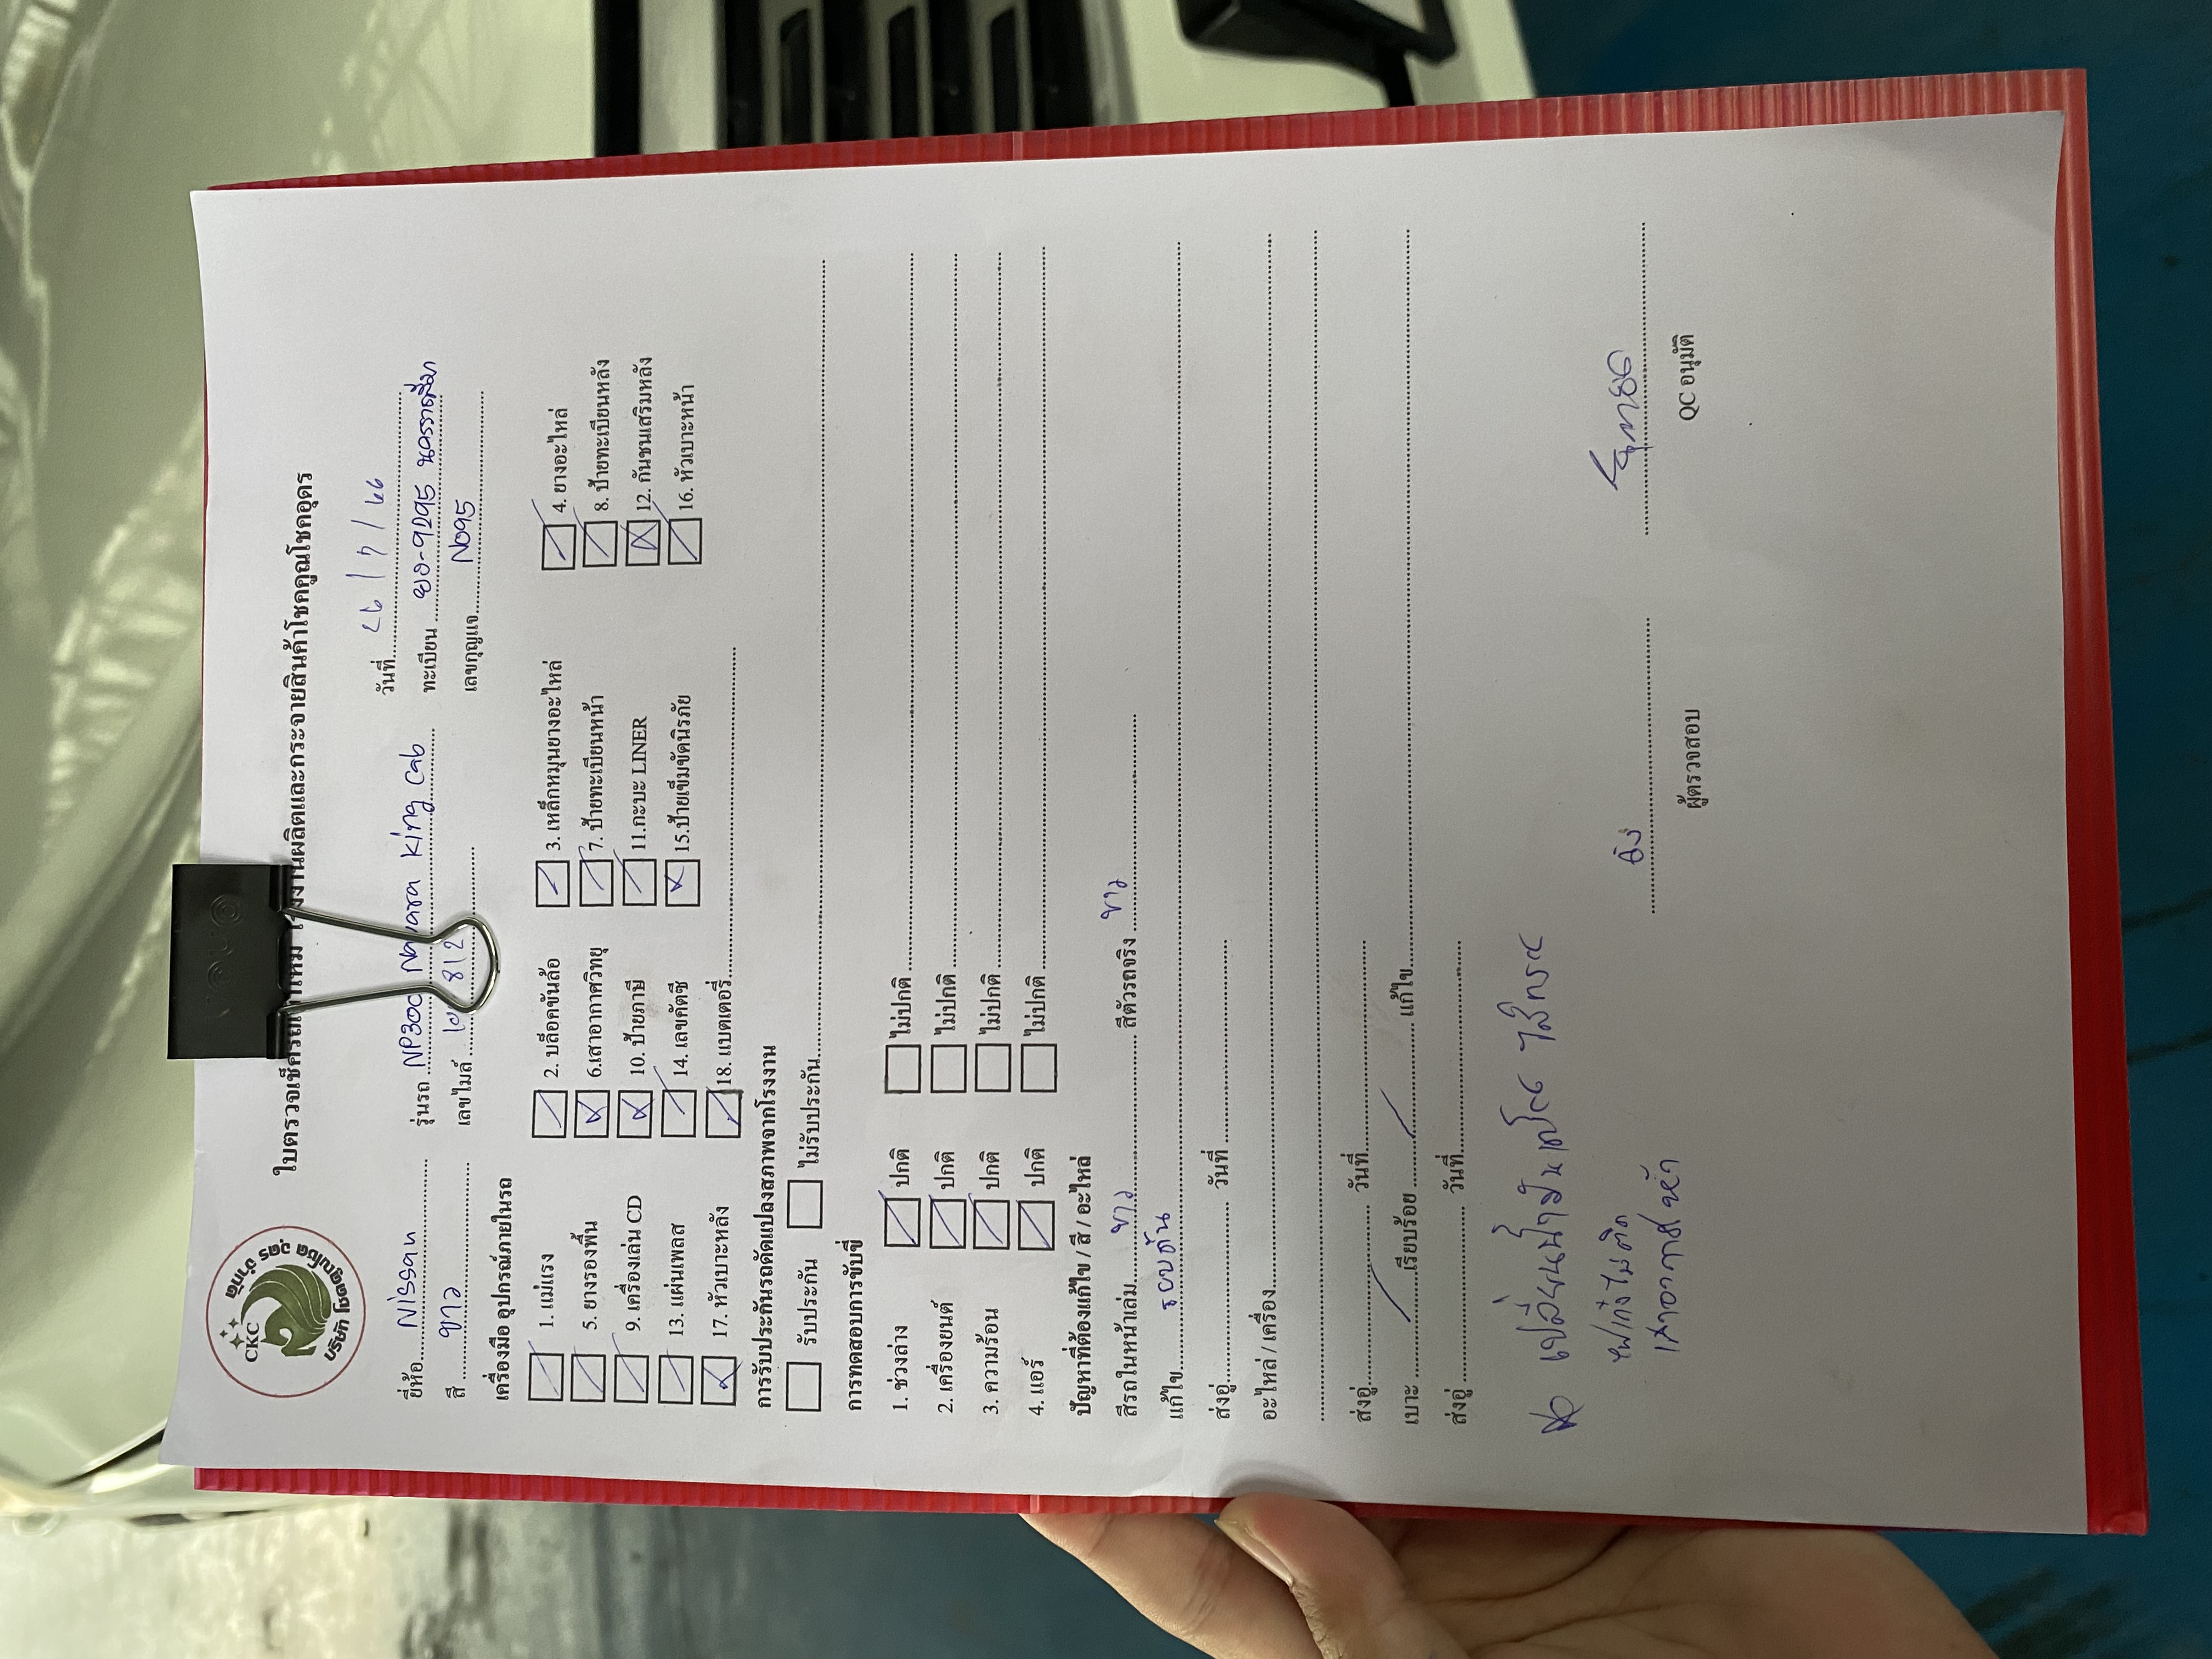 CKC
บริษัท โชคคูณโชค อุดร จำกัด
ใบตรวจเช็ครถ งานผลิตและกระจายสินค้าโชคคูณโชคอุดร
วันที่ 26 / 7 / 66
ยี่ห้อ Nissan รุ่นรถ NP300 Navara King Cab ทะเบียน ยง-9295 นครราชสีมา
สี ขาว เลขไมล์ 812 เลขกุญแจ N095
เครื่องมือ อุปกรณ์ภายในรถ
1. แม่แรง 2. บล็อคขันล้อ 3. เหล็กหมุนยางอะไหล่ 4. ยางอะไหล่
5. ยางรองพื้น 6.เสาอากาศวิทยุ 7. ป้ายทะเบียนหน้า 8. ป้ายทะเบียนหลัง
9. เครื่องเล่น CD 10. ป้ายภาษี 11.กะบะ LINER 12. กันชนเสริมหลัง
13. แผ่นเพลส 14. เลขคัตซี 15.ป้ายเข็มขัดนิรภัย 16. หัวเบาะหน้า
17. หัวเบาะหลัง 18. แบตเตอรี่
การรับประกันรถดัดแปลงสภาพจากโรงงาน
รับประกัน ไม่รับประกัน
การทดสอบการขับขี่
1. ช่วงล่าง ปกติ ไม่ปกติ
2. เครื่องยนต์ ปกติ ไม่ปกติ
3. ความร้อน ปกติ ไม่ปกติ
4. แอร์ ปกติ ไม่ปกติ
ปัญหาที่ต้องแก้ไข / สี / อะไหล่
สีรถในหน้าเล่ม ขาว สีตัวรถจริง ขาว
แก้ไข รอบคัน
ส่งอู่ วันที่
อะไหล่ / เครื่อง
ส่งอู่ วันที่
เบาะ เรียบร้อย แก้ไข
ส่งอู่ วันที่
เปลี่ยนน้ำมันเครื่อง ไส้กรอง
ไฟเก๋งไม่ติด
เสาอากาศหัก
ผู้ตรวจสอบ QC อนุมัติ